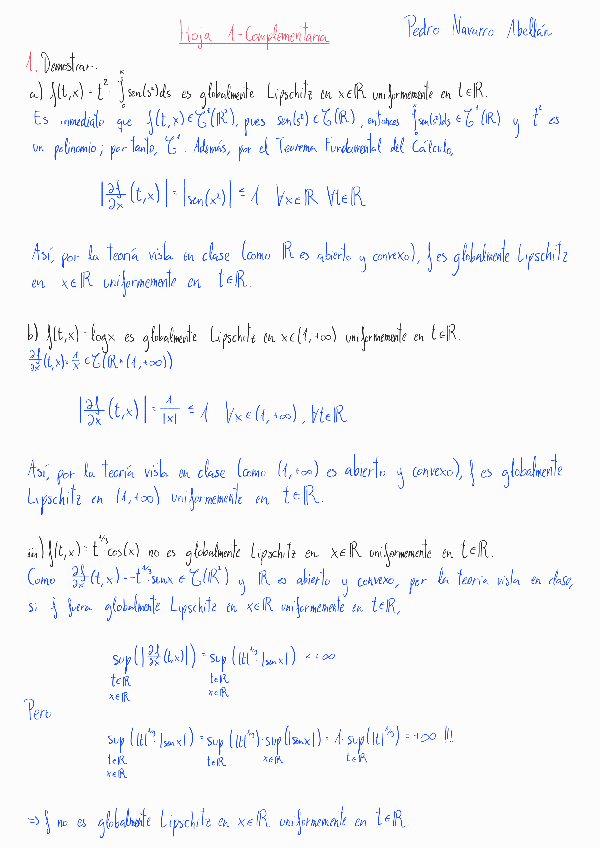 Hoja 1-Complementaria
Pedro Navarro Abellán
1. Demostrar:
a) f(t,x) = t² · ∫₀ˣ sen(s²)ds es globalmente Lipschitz en x∈ℝ uniformemente en t∈ℝ.
Es inmediato que f(t,x)∈𝒞¹(ℝ²), pues sen(s²)∈𝒞(ℝ), entonces ∫₀ˣ sen(s²)ds ∈ 𝒞¹(ℝ) y t² es
un polinomio; por tanto, 𝒞¹. Además, por el Teorema Fundamental del Cálculo,
|∂f/∂x (t,x)| = |sen(x²)| ≤ 1 ∀x∈ℝ ∀t∈ℝ
Así, por la teoría vista en clase (como ℝ es abierto y convexo), f es globalmente Lipschitz
en x∈ℝ uniformemente en t∈ℝ.
b) f(t,x) = log x es globalmente Lipschitz en x∈(1,+∞) uniformemente en t∈ℝ.
∂f/∂x (t,x) = 1/x ∈ 𝒞(ℝ×(1,+∞))
|∂f/∂x (t,x)| = 1/|x| ≤ 1 ∀x∈(1,+∞), ∀t∈ℝ
Así, por la teoría vista en clase (como (1,+∞) es abierto y convexo), f es globalmente
Lipschitz en (1,+∞) uniformemente en t∈ℝ.
iii) f(t,x) = t^{1/3}·cos(x) no es globalmente Lipschitz en x∈ℝ uniformemente en t∈ℝ.
Como ∂f/∂x (t,x) = -t^{1/3}·senx ∈ 𝒞(ℝ²) y ℝ es abierto y convexo, por la teoría vista en clase,
si f fuera globalmente Lipschitz en x∈ℝ uniformemente en t∈ℝ,
sup (|∂f/∂x (t,x)|) = sup (|t|^{1/3}·|senx|) < +∞
t∈ℝ t∈ℝ
x∈ℝ x∈ℝ
Pero
sup (|t|^{1/3}·|senx|) = sup (|t|^{1/3})·sup(|senx|) = 1·sup(|t|^{1/3}) = +∞ !!!
t∈ℝ t∈ℝ x∈ℝ t∈ℝ
x∈ℝ
⇒ f no es globalmente Lipschitz en x∈ℝ uniformemente en t∈ℝ